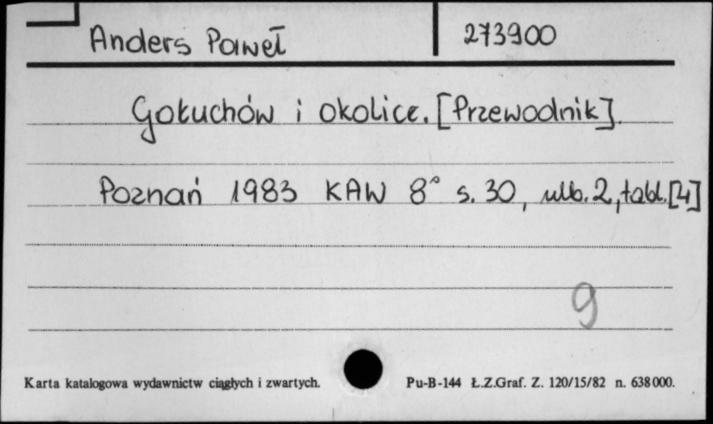 Anders Paweł 273900
Gołuchów i okolice. [Przewodnik].
Poznań 1983 KAW 8° s. 30, ulb. 2, tabl. [4]
9
Karta katalogowa wydawnictw ciągłych i zwartych. Pu-B-144 Ł.Z.Graf. Z. 120/15/82 n. 638000.